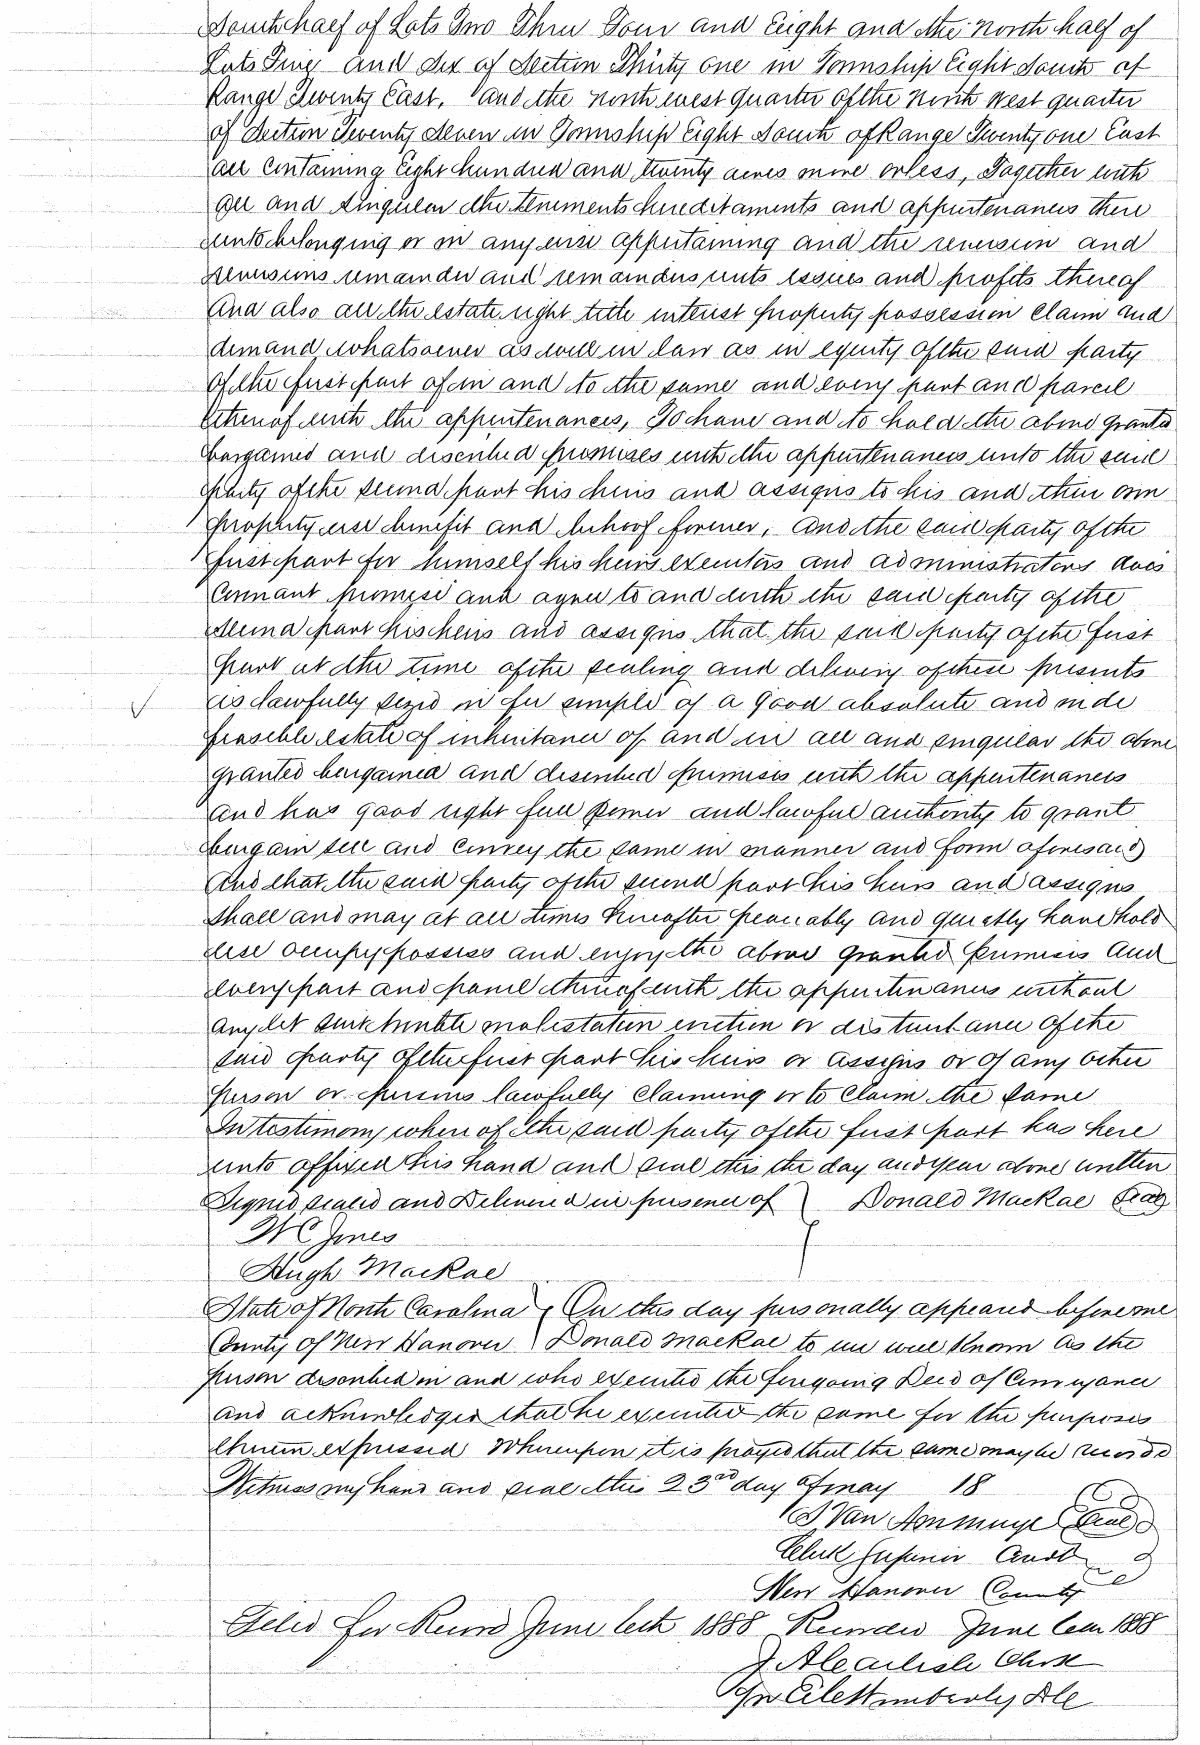 South half of Lots Two Three Four and Eight and the North half of
Lots Five and Six of Section Thirty one in Township Eight South of
Range Twenty East, and the North west quarter of the North West quarter
of Section Twenty Seven in Township Eight South of Range Twenty one East
all containing Eight hundred and twenty acres more or less, Together with
all and singular the tenements hereditaments and appurtenances there
unto belonging or in any wise appertaining and the reversion and
reversions remainder and remainders rents issues and profits thereof
And also all the estate right title interest property possession Claim and
demand whatsoever as well in law as in equity of the said party
of the first part of in and to the same and every part and parcel
thereof with the appurtenances, To have and to hold the above granted
bargained and described premises with the appurtenances unto the said
party of the second part his heirs and assigns to his and their own
property use benefit and behoof forever, And the said party of the
first part for himself his heirs executors and administrators does
Covenant promise and agree to and with the said party of the
second part his heirs and assigns that the said party of the first
part at the time of the sealing and delivery of these presents
is lawfully seized in fee simple of a good absolute and inde
feasible estate of inheritance of and in all and singular the above
granted bargained and described premises with the appurtenances
and has good right full power and lawful authority to grant
bargain sell and Convey the same in manner and form aforesaid
And that the said party of the second part his heirs and assigns
shall and may at all times hereafter peaceably and quietly have hold
use occupy possess and enjoy the above granted premises and
every part and parcel thereof with the appurtenances without
any let suit trouble molestation eviction or disturbance of the
said party of the first part his heirs or assigns or of any other
person or persons lawfully Claiming or to Claim the same
In testimony where of the said party of the first part has here
unto affixed his hand and seal this the day and year above written
Signed sealed and Delivered in presence of Donald MacRae Seal
W C Jones
Hugh MacRae
State of North Carolina On this day personally appeared before me
County of New Hanover Donald MacRae to me well Known as the
person described in and who executed the foregoing Deed of Conveyance
and acknowledged that he executed the same for the purposes
therein expressed Whereupon it is prayed that the same may be recorded
Witness my hand and seal this 23rd day of May 18
S Van Amringe Seal
Clerk Superior Court
New Hanover County
Filed for Record June 6th 1888 Recorded June 1888
Clerk